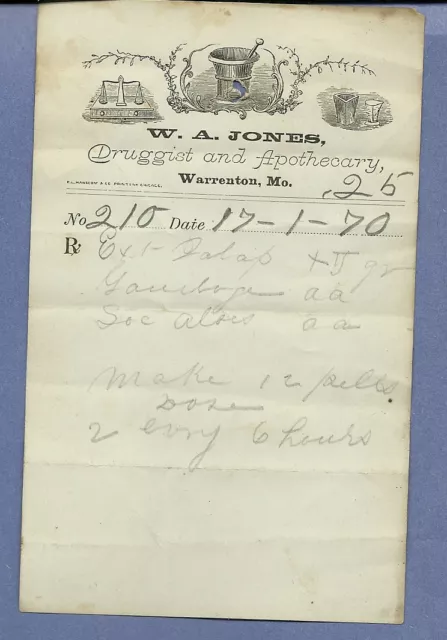 W. A. JONES,
Druggist and Apothecary,
Warrenton, Mo.
,25
No 210 Date 17-1-70
Rx Ext Jalap gr
Gamboge aa
Soc Aloes aa
Make 12 pills
Dose
2 evry 6 hours